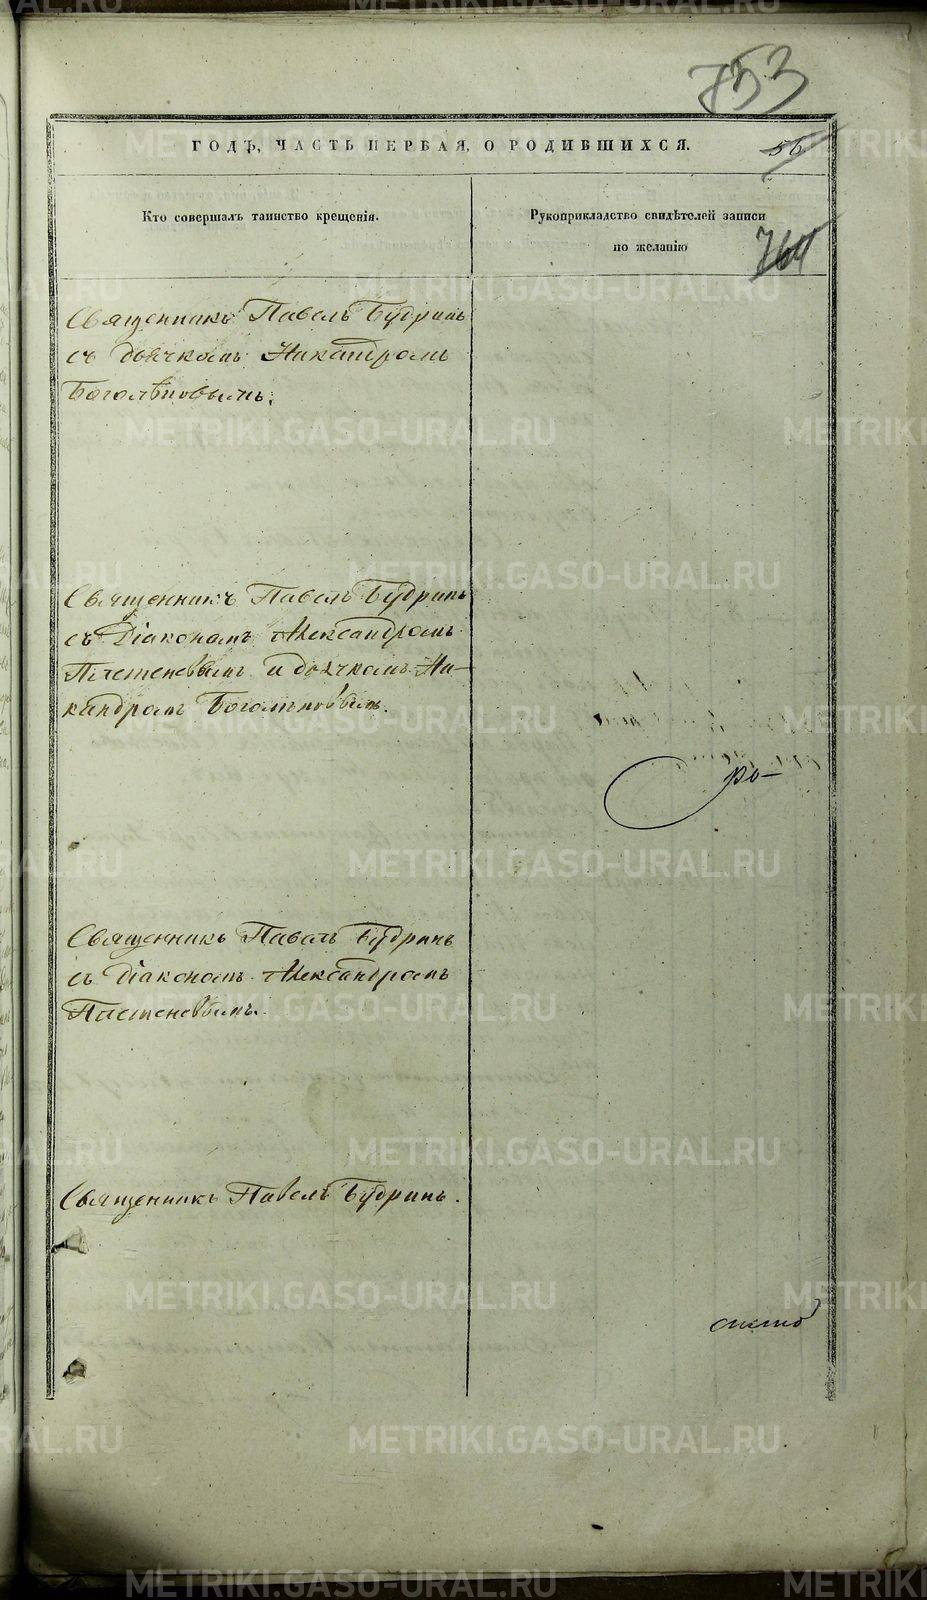 753
ГОДЪ, ЧАСТЬ ПЕРВАЯ, О РОДИВШИХСЯ.
56
Кто совершалъ таинство крещенія.
Рукоприкладство свидѣтелей записи
по желанію
764
Священникъ Павелъ Будринъ
съ дьячкомъ Никандромъ
Боголѣповымъ.
Священникъ Павелъ Будринъ
съ Діакономъ Александромъ
Плетеневымъ и дьячкомъ Ни-
кандромъ Боголѣповымъ.
ро-
Священникъ Павелъ Будринъ
съ Діакономъ Александромъ
Плетеневымъ.
Священникъ Павелъ Будринъ.
METRIKI.GASO-URAL.RU